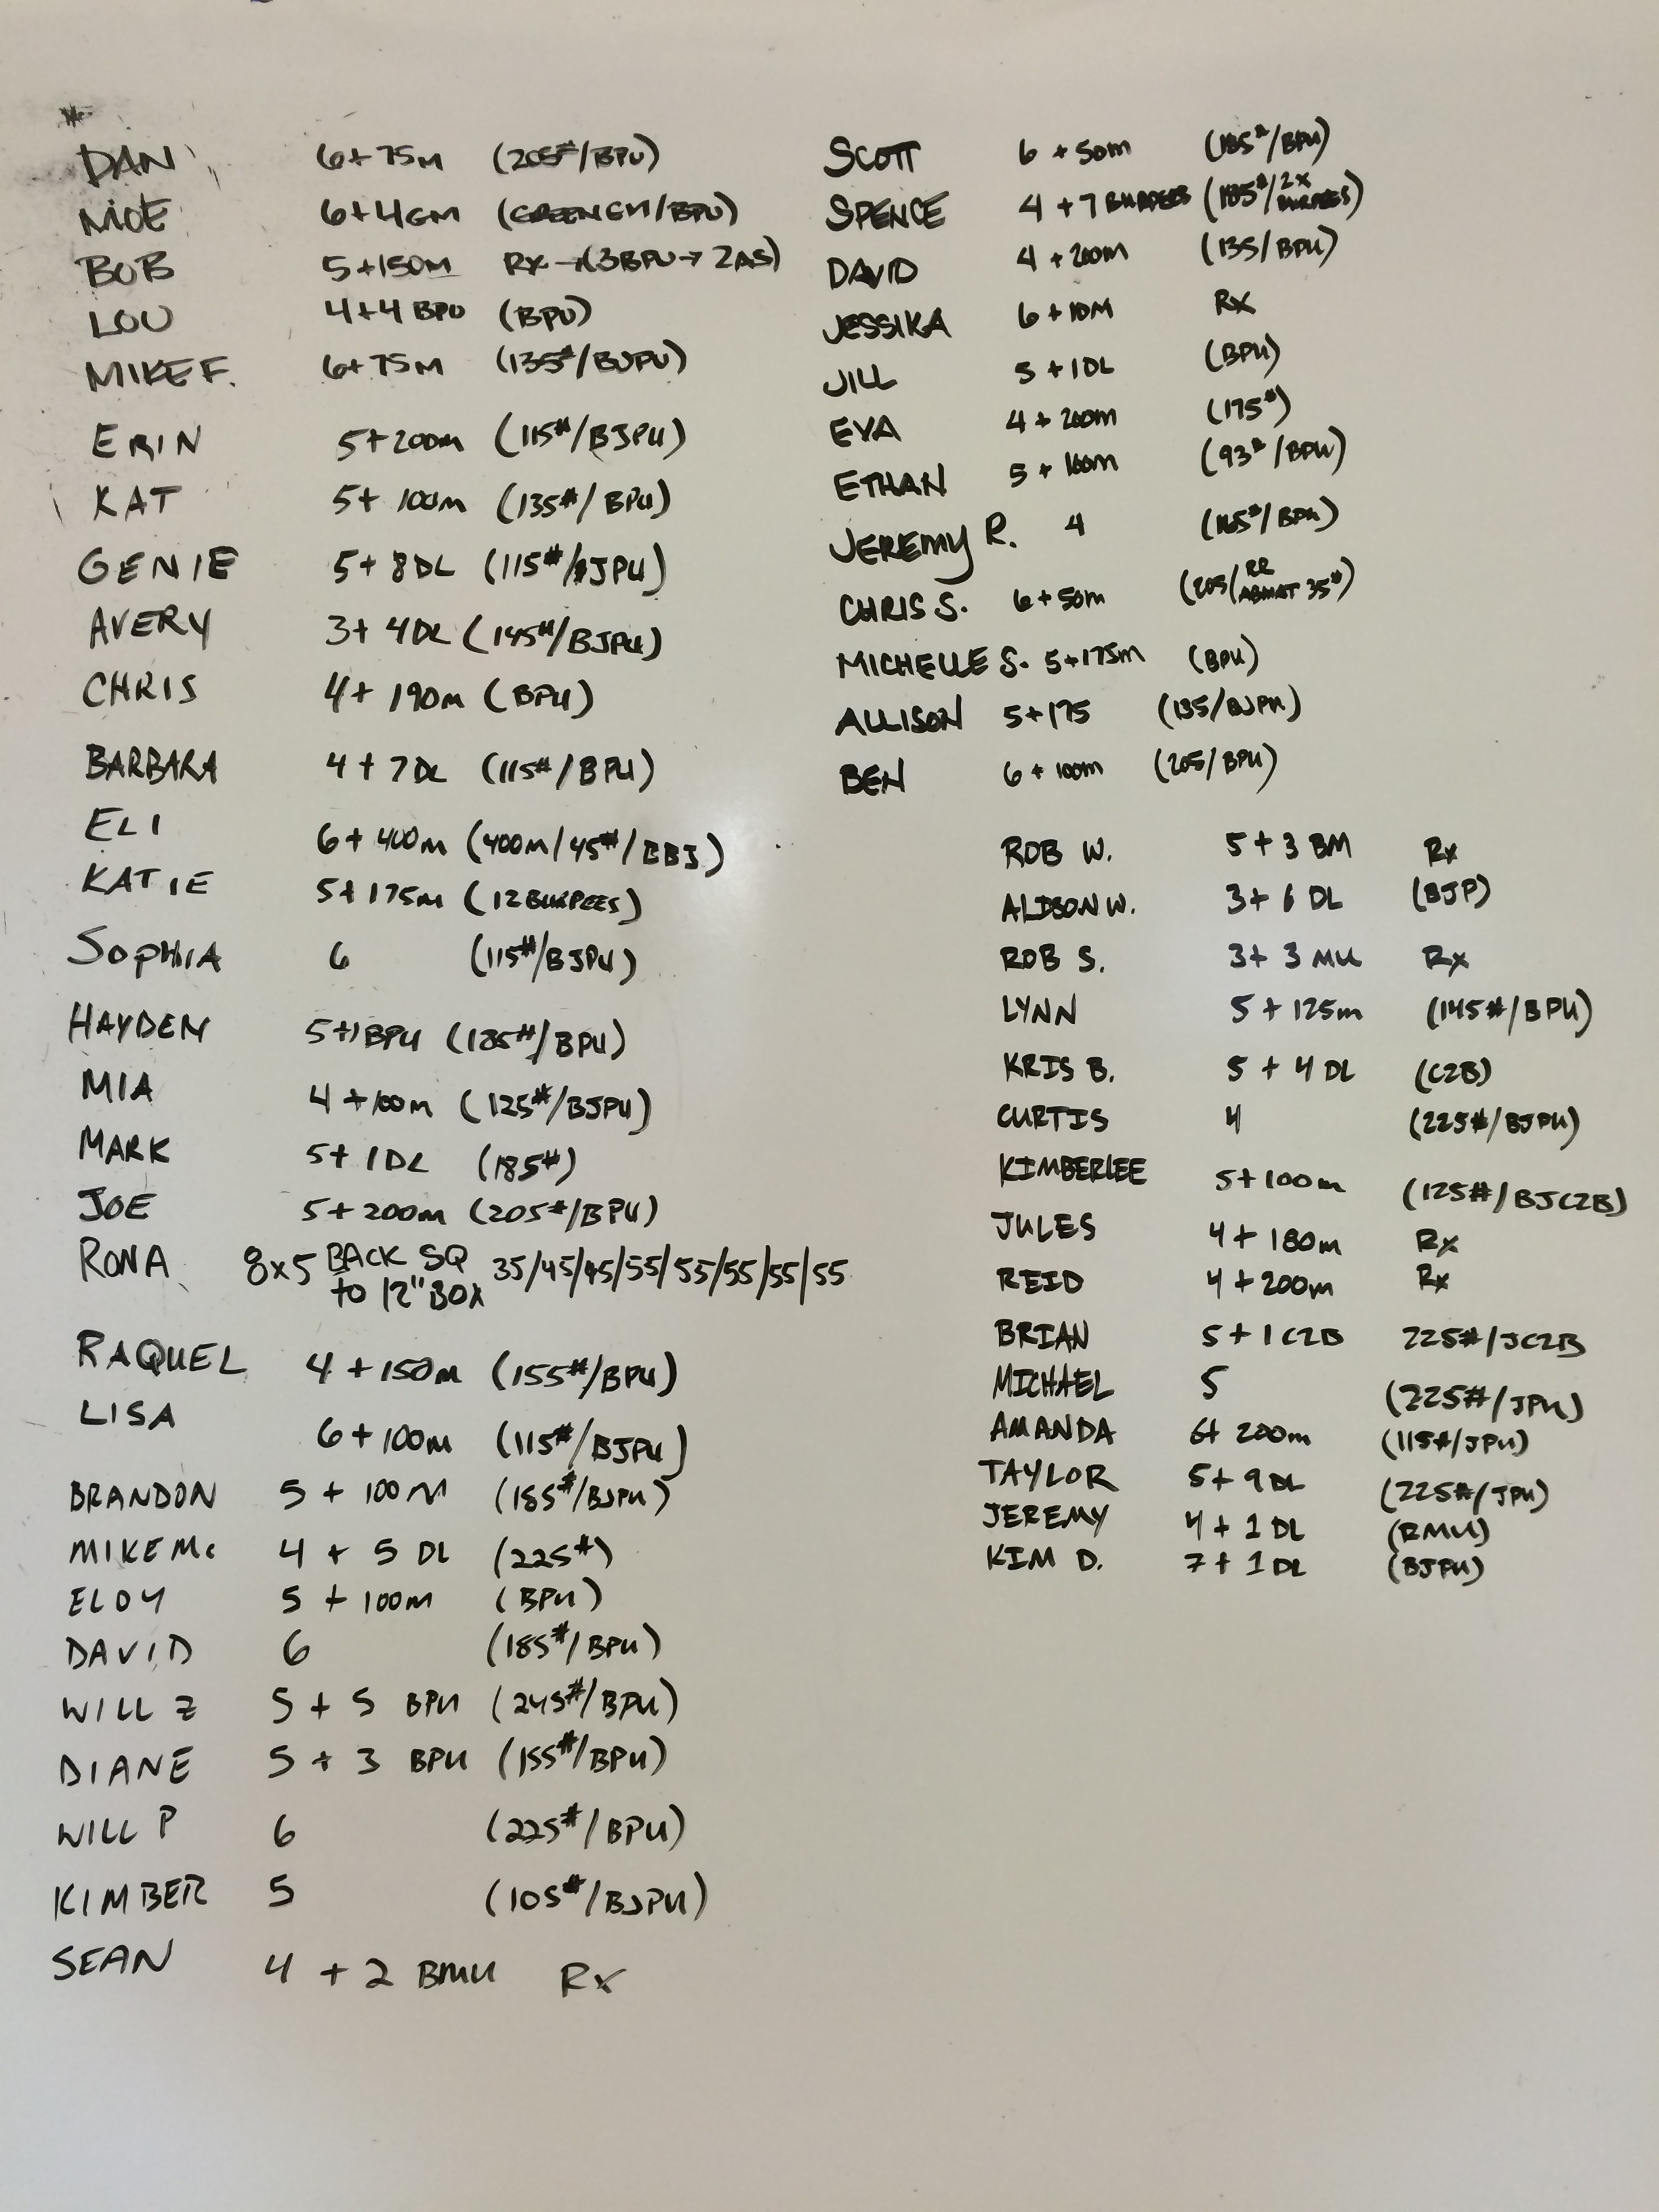 DAN 6+75m (205#/BPU)
MOE 6+4GM (GREEN GM/BPU)
BOB 5+150m RX→(3BPU→2AS)
LOU 4+4 BPU (BPU)
MIKE F. 6+75m (135#/BJPU)
ERIN 5+200m (115#/BJPU)
KAT 5+ 100m (135#/BPU)
GENIE 5+ 8DL (115#/BJPU)
AVERY 3+ 4DL (145#/BJPU)
CHRIS 4+ 190m (BPU)
BARBARA 4+7DL (115#/BPU)
ELI 6+ 400m (400m/45#/BBJ)
KATIE 5+175m (12BURPEES)
SOPHIA 6 (115#/BJPU)
HAYDEN 5+1BPU (185#/BPU)
MIA 4+100m (125#/BJPU)
MARK 5+1DL (185#)
JOE 5+200m (205#/BPU)
RONA 8x5 BACK SQ 35/45/45/55/55/55/55/55
to 12" BOX
RAQUEL 4+150m (155#/BPU)
LISA 6+100m (115#/BJPU)
BRANDON 5+100m (185#/BJPU)
MIKE Mc 4+5 DL (225#)
ELOY 5+100m (BPU)
DAVID 6 (185#/BPU)
WILL Z 5+5 BPU (245#/BPU)
DIANE 5+3 BPU (155#/BPU)
WILL P 6 (225#/BPU)
KIMBER 5 (105#/BJPU)
SEAN 4+2 BMU Rx
SCOTT 6+50m (185#/BPU)
SPENCE 4+7 BURPEES (185#/2x BURPEES)
DAVID 4+200m (135/BPU)
JESSIKA 6+10M Rx
JILL 5+1DL (BPU)
EVA 4+200m (175#)
ETHAN 5+100m (93#/BPU)
JEREMY R. 4 (165#/BPU)
CHRIS S. 6+50m (205/RR ABMAT 35#)
MICHELLE S. 5+175m (BPU)
ALLISON 5+175 (135/BJPU)
BEN 6+100m (205/BPU)
ROB W. 5+3 BM Rx
ALISON W. 3+6 DL (BJP)
ROB S. 3+3 MU Rx
LYNN 5+125m (145#/BPU)
KRIS B. 5+4 DL (C2B)
CURTIS 4 (225#/BJPU)
KIMBERLEE 5+100m (125#/BJC2B)
JULES 4+180m Rx
REID 4+200m Rx
BRIAN 5+1 C2B 225#/JC2B
MICHAEL 5 (225#/JPU)
AMANDA 6+ 200m (115#/JPU)
TAYLOR 5+9DL (225#/JPU)
JEREMY 4+1 DL (RMU)
KIM D. 7+1 DL (BJPU)